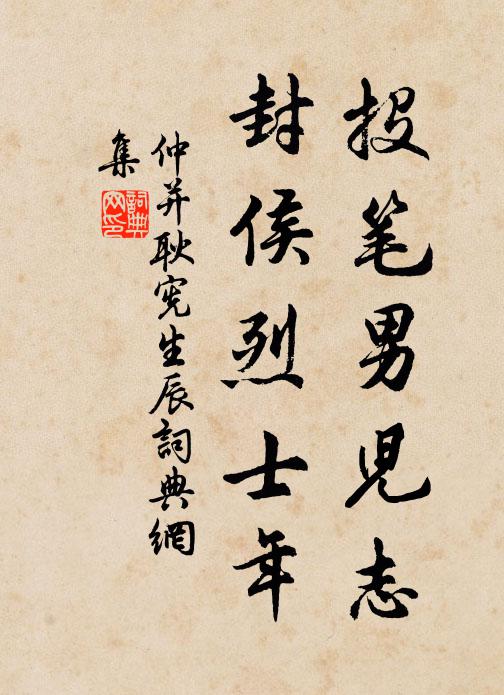 投笔男児志
封侯烈士年
仲并耿宪生辰詞典網
集
詞典網印